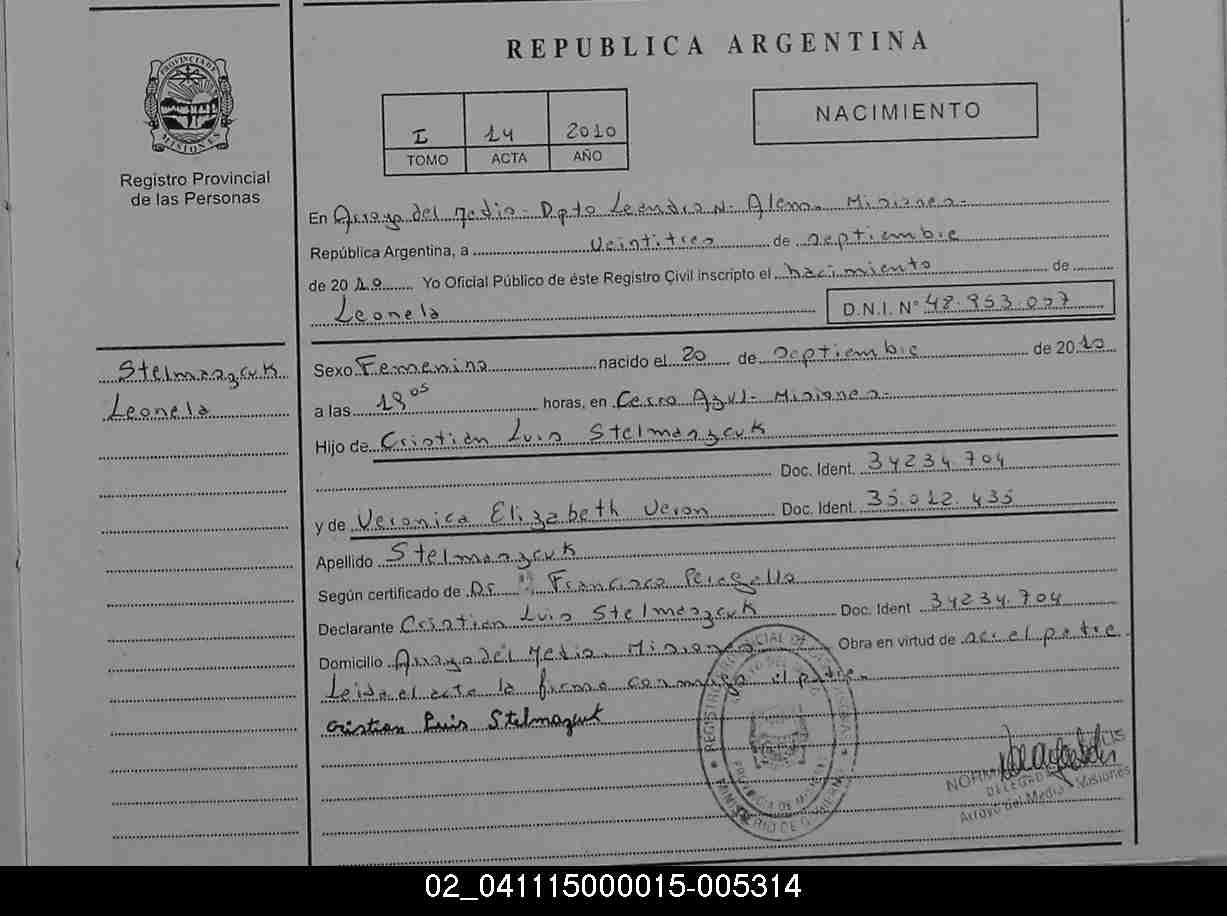 REPUBLICA ARGENTINA
PROVINCIA DE
MISIONES
Registro Provincial
de las Personas
I 14 2010
TOMO ACTA AÑO
NACIMIENTO
En Arroyo del Medio - Dpto Leandro N. Alem. Misiones.
República Argentina, a veintitres de septiembre
de 2010 Yo Oficial Público de éste Registro Civil inscripto el nacimiento de
Leonela D.N.I. Nº 48.953.097
Stelmaszcuk
Leonela
Sexo Femenino nacido el 20 de septiembre de 2010
a las 19 05 horas, en Cerro Azul - Misiones.
Hijo de Cristian Luis Stelmaszcuk
Doc. Ident. 34234.704
y de Veronica Elizabeth Veron Doc. Ident. 35.012.435
Apellido Stelmaszcuk
Según certificado de Dr Francisco Peragallo
Declarante Cristian Luis Stelmaszcuk Doc. Ident 34234.704
Domicilio Arroyo del Medio. Misiones Obra en virtud de ser el padre.
Leida el acta la firma conmigo el padre.
Cristian Luis Stelmazcuk
DELEGADA
Arroyo del Medio - Misiones
02_041115000015-005314